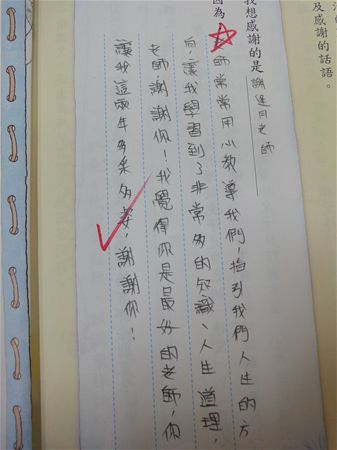 及感謝的話語。
我想感謝的是謝逢月老師
因為
老師常常用心教導我們！指引我們人生的方
向，讓我學習到了非常多的知識、人生道理，
老師，謝謝你！我覺得你是最好的老師，你
讓我這兩年多采多姿，謝謝你！